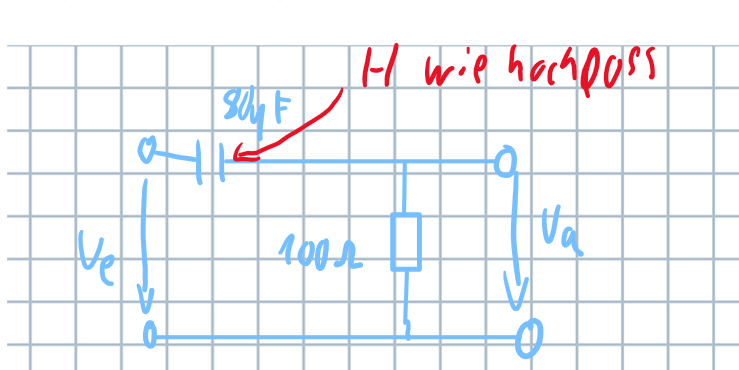 H wie hochpass
80µF
Ue
100Ω
Ua